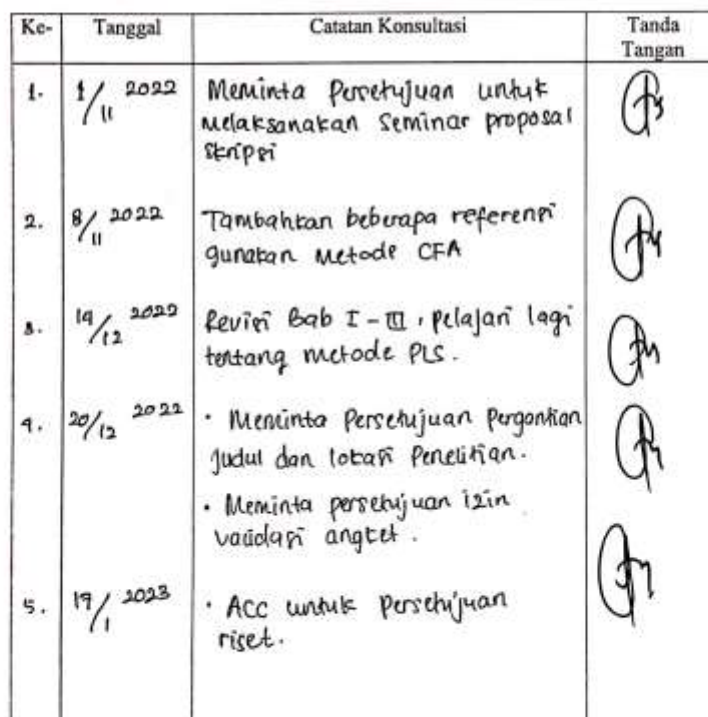 Ke- Tanggal Catatan Konsultasi Tanda
Tangan
1. 1/11 2022 Meminta Persetujuan untuk
melaksanakan Seminar proposal
Skripsi
2. 8/11 2022 Tambahkan beberapa referensi
gunakan Metode CFA
3. 14/12 2022 Revisi Bab I - III, pelajari lagi
tentang metode PLS.
4. 20/12 2022 • Meminta Persetujuan Pergantian
Judul dan lokasi Penelitian.
• Meminta persetujuan izin
validasi angket.
5. 19/1 2023 • ACC untuk Persetujuan
riset.